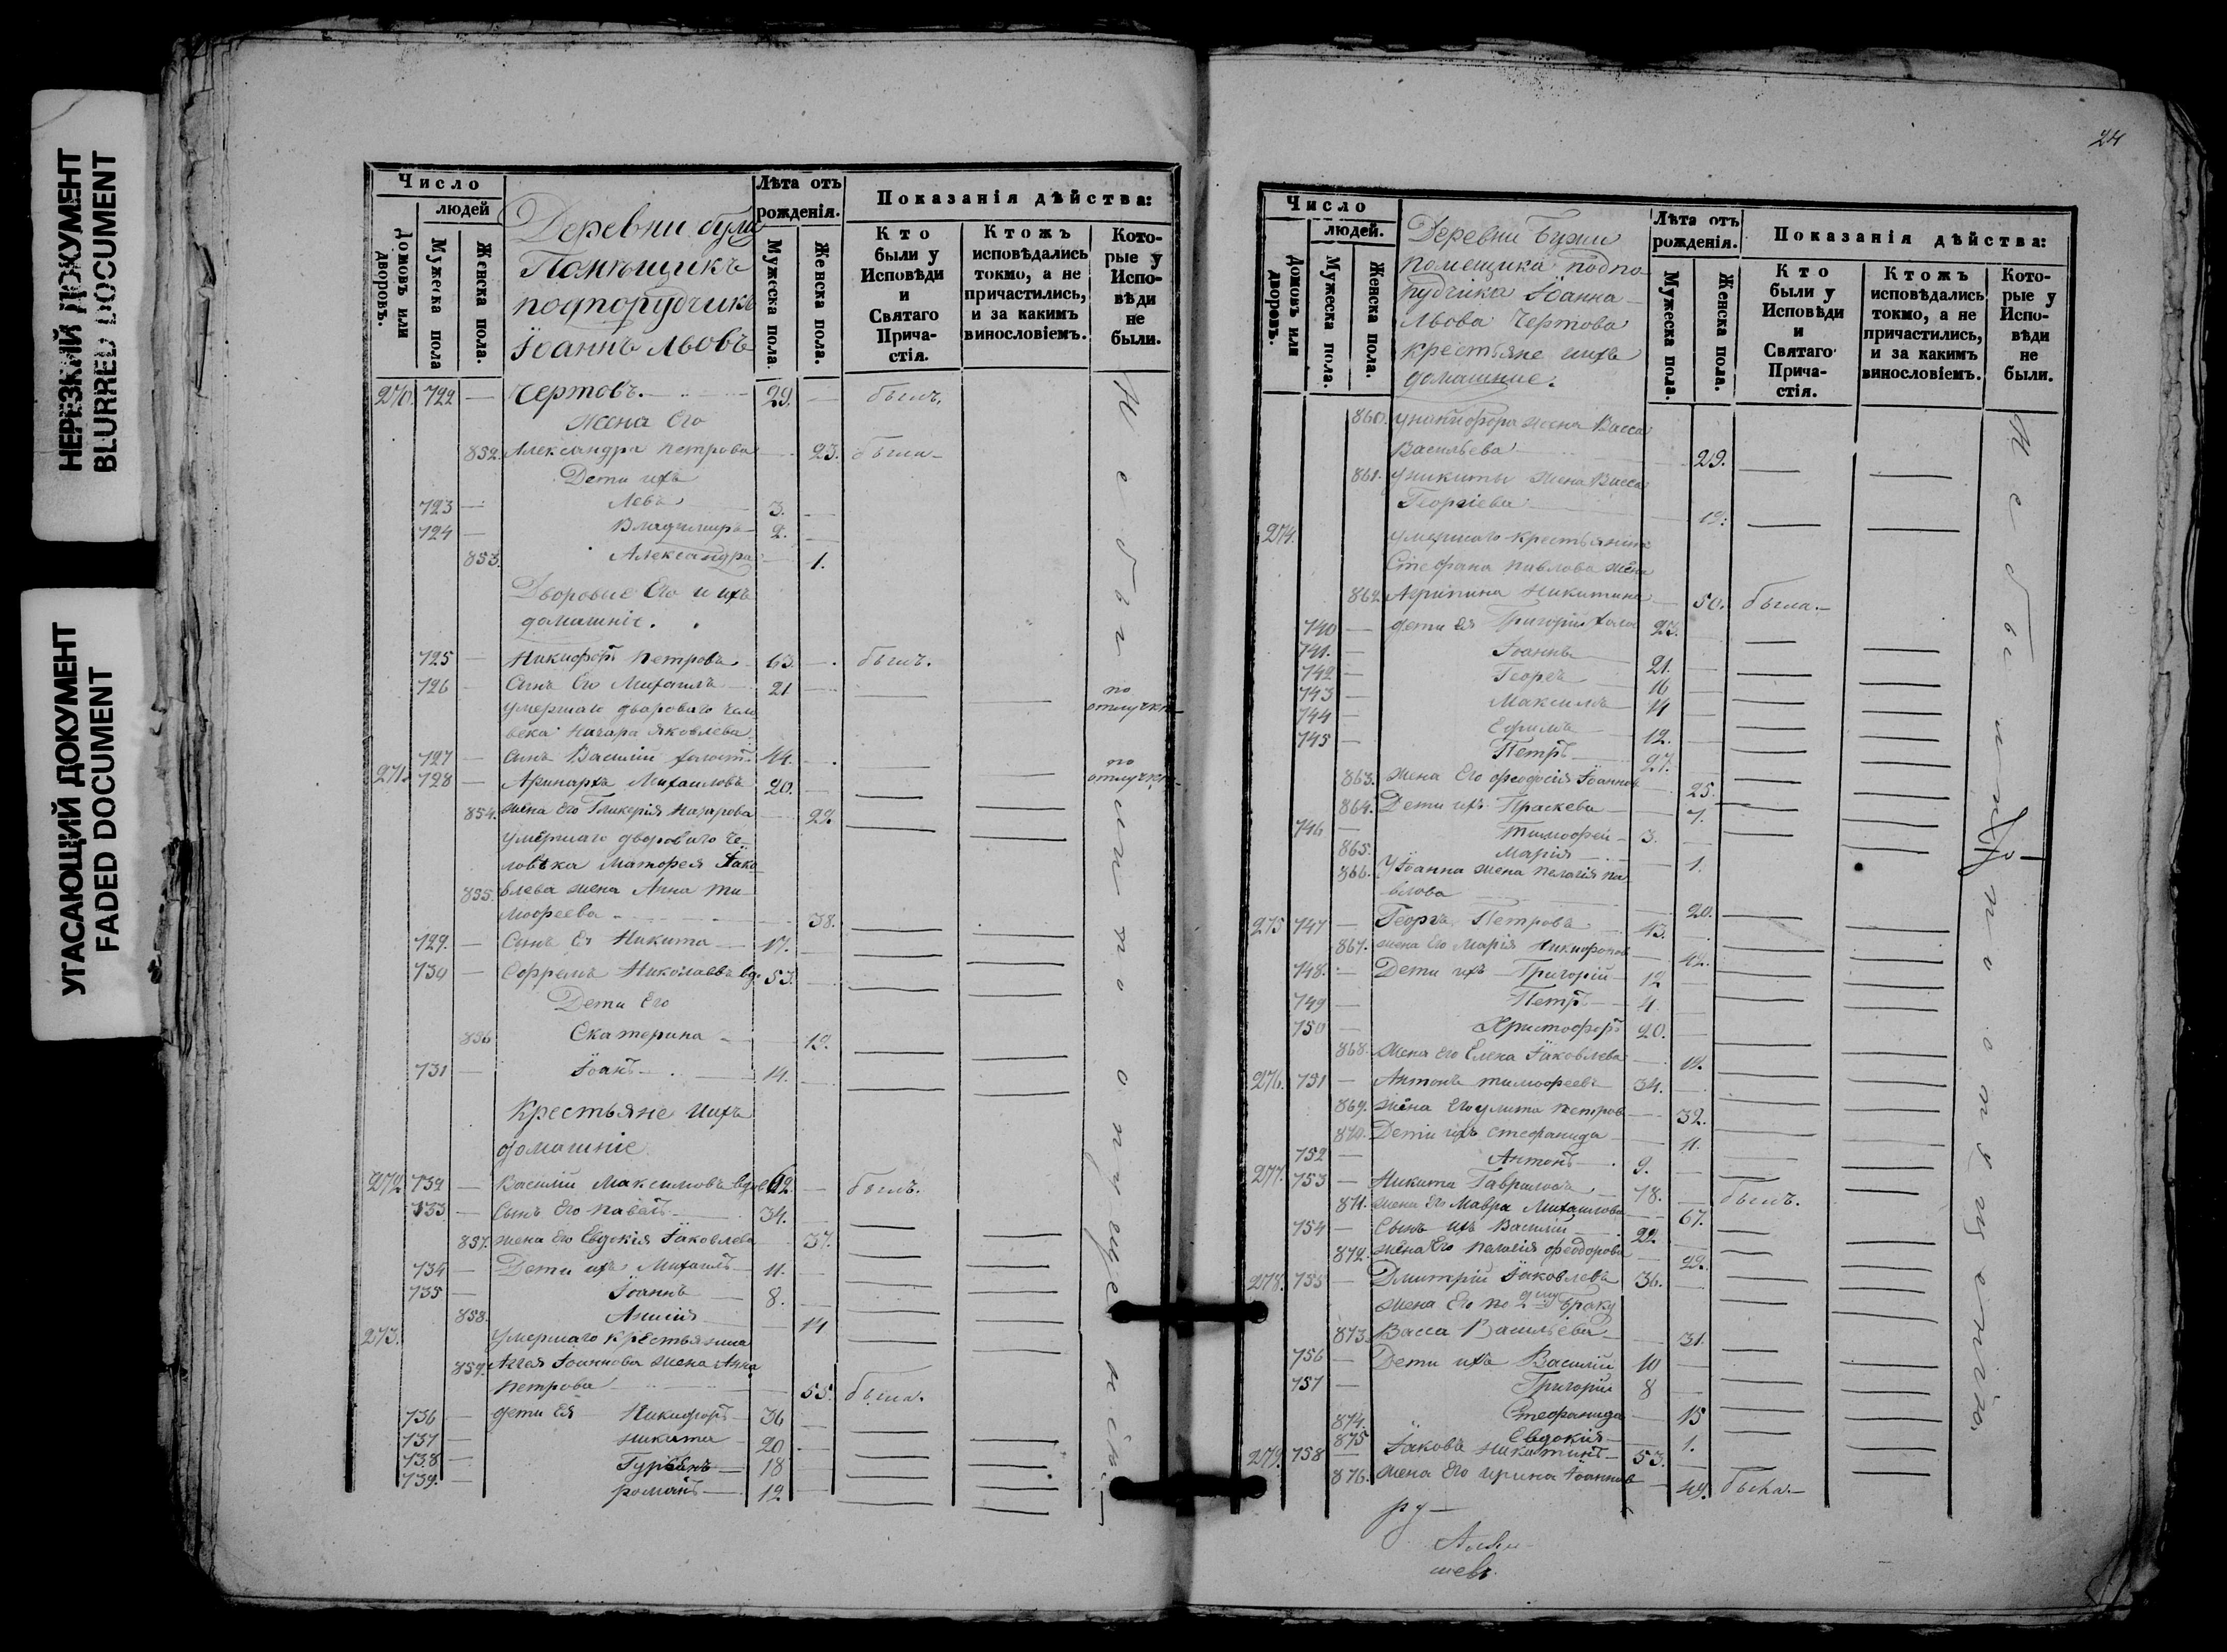 НЕРЕЗКИЙ ДОКУМЕНТ
BLURRED DOCUMENT
УГАСАЮЩИЙ ДОКУМЕНТ
FADED DOCUMENT
Число
людей
Домовъ или дворовъ.
Мужеска пола
Женска пола.
Деревни
Помѣщикъ
подпорудчикъ
Іоаннъ Львовъ
Лѣта отъ рожденія.
Мужеска пола.
Женска пола.
Показанія дѣйства:
Кто были у Исповѣди и Святаго Причастія.
Ктожъ исповѣдались токмо, а не причастились, и за какимъ винословіемъ.
Которые у Исповѣди не были.
270. 722 — Чертовъ. 29. — былъ.
Жена Его
852. Александра Петрова — 23. была —
Дети ихъ
723 — Левъ 3. —
724 — Владимиръ 2. —
853. Александра — 1.
Дворовые Его и ихъ
домашніе.
725 — Никифоръ Петровъ 63. — былъ.
726 — Сынъ Его Михаилъ 21 — по отлучкѣ
умершаго двороваго чело
века Назара Яковлева
727 — Сынъ Василій холост. 44. —
271. 728 — Аринархъ Михаиловъ 20. — по отлучкѣ
854. жена Его Гликерія Назарова — 22
умершаго двороваго че-
ловѣка Матфея Яко
855. влева жена Анна Ти-
мофеева 38.
729. — Сынъ Ея Никита 17. —
730 — Ефремъ Николаевъ вд. 53. —
Дети Его
856 Екатерина — 19.
731 — Іоанъ 14. —
Крестьяне ихъ
домашніе
272 732 — Василій Максимовъ 62. — былъ.
733 — Сынъ Его Павелъ 34. —
857. жена Его Евдокія Іаковлева 37.
734 — Дети ихъ Михаилъ 11. —
735 — Іоаннъ 8. —
858. Анисія — 14
273. умершаго крестьянина
859. Іоаннова жена Анна
Петрова — 55. была.
736 — дети Ея Никифоръ 36 —
737 — Никита 20 —
738 — 18
739. — Романъ 12. —
24
Число
людей.
Домовъ или дворовъ.
Мужеска пола.
Женска пола.
Деревни
помещика подпо-
рудчика Іоанна
Львова Чертова
крестьяне ихъ
домашние.
Лѣта отъ рожденія.
Мужеска пола.
Женска пола.
Показанія дѣйства:
Кто были у Исповѣди и Святаго Причастія.
Ктожъ исповѣдались токмо, а не причастились, и за какимъ винословіемъ.
Которые у Исповѣди не были.
860. у никифора жена Васса
Васильева 29.
861. у никиты жена Васса
Георгіева 19.
274. умершаго крестьянина
Стефана Павлова жена
862. Агрипина Никитина — 50. была. —
740 — дети Ея Григорій холос 23. —
741. — Іоаннъ 21. —
742 — Георгъ 16 —
743 — Максимъ 14
744 — Ефимъ 12. —
745 — Петръ 27. —
863. жена Его Феодосія Іоаннов 25.
864. Дети ихъ Праскева — 7.
746 — Тимофей 3. —
865. Марія — 1.
866. У Іоанна жена Пелагія Па
влова 20.
275 747 — Георгъ Петровъ 43. —
867. жена Его Марія Никифоров 42.
748. — Дети ихъ Григорій 12 —
749 — Петръ 4. —
750 — Христофоръ 20. —
868. жена Его Елена Іаковлева
276. 751 — Антонъ Тимофеевъ 34. —
869. жена Его Улита Петров 32.
870. Дети ихъ Стефанида — 11.
752 — Антонъ 9.
277. 753 — Никита Гавриловъ 78. — былъ.
871. жена Его Мавра Михаилова 67.
754 — Сынъ ихъ Василій 22. —
872. жена Его Пелагія Феодорова 22.
278. 755 — Дмитрій Іаковлевъ 36. —
жена Его по 2му браку
873. Васса Васильева — 31.
756 — Дети ихъ Василій 10 —
757 — Григорій 8 —
874. Стефанида — 15
875 Евдокія — 1.
279. 758 — Іаковъ Никитинъ 53. —
876. жена Его Ирина Іоаннов 49. была. —
Не были по опущенію
Не были по опущенію
ру —